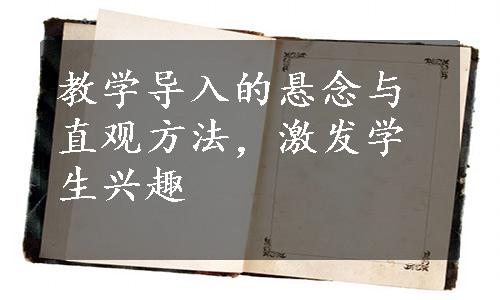 教学导入的悬念与
直观方法，激发学
生兴趣